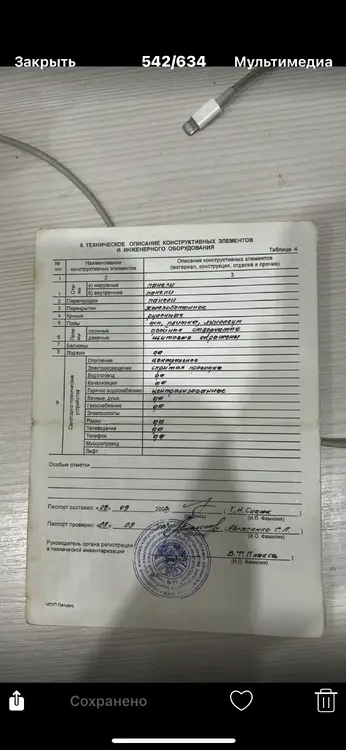 Закрыть 542/634 Мультимедиа
5. ТЕХНИЧЕСКОЕ ОПИСАНИЕ КОНСТРУКТИВНЫХ ЭЛЕМЕНТОВ
И ИНЖЕНЕРНОГО ОБОРУДОВАНИЯ
Таблица 4
№ п/п Наименование конструктивных элементов Описание конструктивных элементов (материал, конструкция, отделка и прочие)
1 2 3
1 Стены а) наружные панели
б) внутренние панели
2 Перегородки панели
3 Перекрытия железобетонное
4 Крыша рулонная
5 Полы плитка, линолеум
6 оконные створчатые
дверные окрашены
7 Балконы
8 Лоджии да
9 Санитарно-технические устройства Отопление центральное
Электроосвещение скрытая проводка
Водопровод да
Канализация да
Горячее водоснабжение централизованное
Ванные, души да
Газоснабжение да
Электроплиты
Радио да
Телевидение да
Телефон да
Мусоропровод
Лифт
Особые отметки
Паспорт составил 09 200 (подпись) (И.О. Фамилия)
Паспорт проверил 09 200 (И.О. Фамилия)
Руководитель органа регистрации
и технической инвентаризации (И.О. Фамилия)
Сохранено